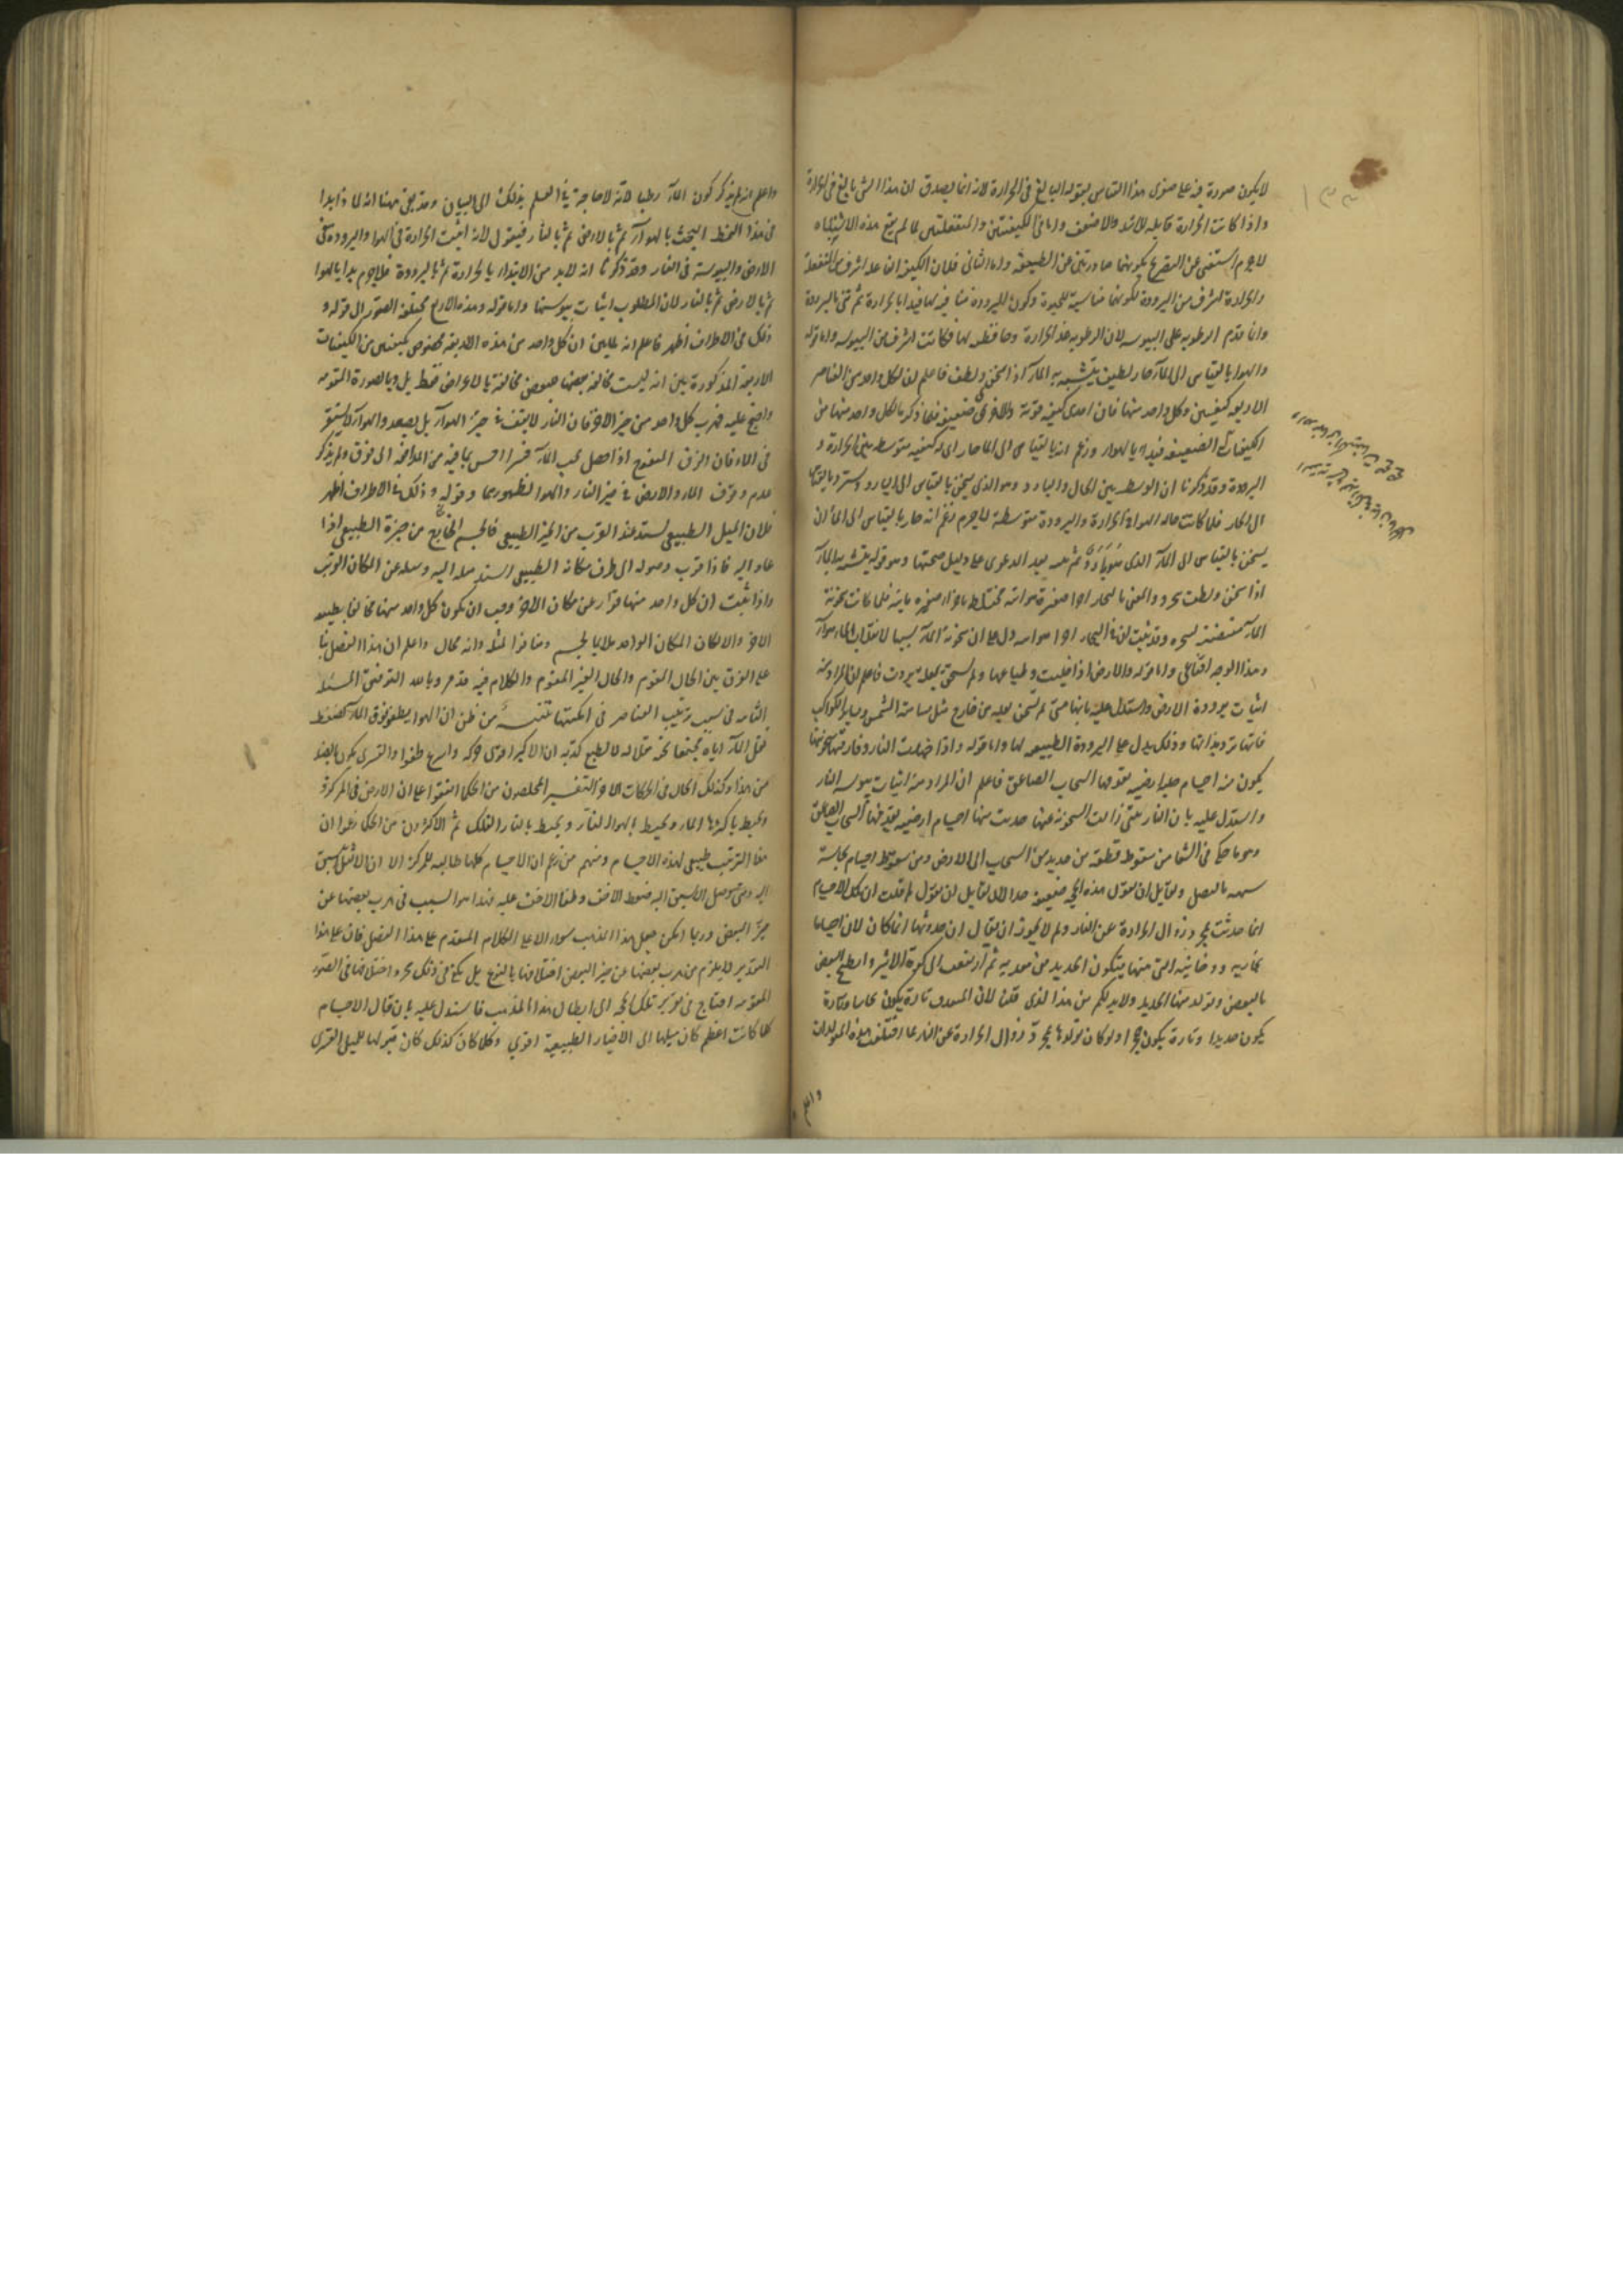 لا يكون صورة فيه على صغرى هذا القياس بقوله البالغ فى الحرارة لانه انما يصدق ان هذا الشى بالغ فى الحرارة
واذا كانت الحرارة قابله للاشد والاضعف واما فى الكيفيتين المنفعلتين لما لم يقع هذه الاشتباه
لاجرم استغنى عن التصريح بكونهما صادرتين عن الطبيعة واما الثانى فلان الكيف الفاعلة اشرف من المنفعلة
والحرارة اشرف من البرودة لكونها مناسبة للحيوة وكون البرودة منافيه لها فبدا بالحرارة ثم ثنى بالبرودة
وانما قدم الرطوبه على اليبوسه لان الرطوبه الحرارة وحافظه لها فكانت اشرف من اليبوسه واما قوله
والهوا بالقياس الى المآ حار لطيف يتشبه به المآ اذا سخن ولطف فاعلم ان لكل واحد من العناصر
الاربعه كيفيتين وكل واحد منها فان احدى كيفيته قوية والاخرى ضعيفه فلما ذكر بالكل واحد منها من
الكيفيات الضعيفه فبدا بالهوا وزعم انه بالقياس الى الما حار اى له كيفيه متوسطه بين الحرارة و
البرودة وقد ذكرنا ان الوسط بين الحار والبارد وهو الذى يسخن بالقياس الى البارد ويستبرد بالقياس
الى الحار فلما كانت حاله الهوا فى الحرارة والبرودة متوسطة لاجرم زعم انه حار بالقياس الى الما لان
يسخن بالقياس الى المآ الذى ثم بعد الدعوى على دليل صحتها وهو قوله يتشبه به المآ
اذا سخن ولطف والمعنى بالبخار اجزا صغيرة هوائيه مختلطه باجزا صغيره مائيه فلما كانت سخونة
المآ مقتضية وقد ثبت ان فى البخار اجزا هوائيه دل على ان سخونة المآ سببها لانقلاب الماء هوآ
وهذا الوجه اقناعى واما قوله والارض اذا خليت وطباعها ولم تسخن بعلة بردت فاعلم ان المراد منه
اثبات برودة الارض واستدل عليه بانها متى لم تسخن بعله من خارج مثل مسامته الشمس وساير الكواكب
فانها تبرد بذاتها وذلك يدل على البرودة الطبيعيه لها واما قوله واذا خمدت النار وفارقتها سخونتها
يكون منه اجسام صلبه ارضيه يقذفها السحاب الصاعق فاعلم ان المراد منه اثبات يبوسه النار
واستدل عليه بان النار متى زالت السخونه عنها حدثت منها اجسام ارضيه يقذفها السحاب الصاعق
وهو ما حكى فى الشفا من سقوط قطعة من حديد من السحاب الى الارض ومن سقوط اجسام نحاسية
بالنصل ولقايل ان يقول هذه الحجه ضعيفه جدا لان لقايل ان يقول لم قلت ان تلك الاجسام
انما حدثت بمجرد زوال الحرارة عن النار ولم لا يجوز ان يقال ان حدوثها انما كان لان اجساما
بخاريه ودخانيه التى منها يتكون الحديد من معدنه ثم ارتفعت الى كرة الاثير وانطبخ البعض
بالبعض وتولد منها الحديد ولابد لكم من هذا الذى قلنا لان تارة يكون نحاسا وتارة
يكون حديدا وتارة يكون حجرا ولو كان تولدها بمجرد زوال الحرارة عن النار لما اختلفت هذه المتولدات
واعلم
واعلم انه لم يذكر كون المآ رطبا لانه لا حاجة فى العلم بذلك الى البيان وقد بقى ههنا انه لما ذا بدا
فى هذا النمط البحث بالهوآ ثم بالارض ثم بالنار فنقول لانه اثبت الحرارة فى الهوا والبرودة فى
الارض واليبوسة فى النار وقد ذكرنا انه لابد من الابتداء بالحرارة ثم بالبرودة فلاجرم بدا بالهوا
ثم بالارض ثم بالنار لان المطلوب اثبات يبوستها واما قوله وهذه الاربع مختلفه الصور الى قوله و
ذلك فى الاطراف اظهر فاعلم انه لما بين ان كل واحد من هذه الاربعة مخصوص بكيفيتين من الكيفيات
الاربعة المذكورة بين انه ليست مخالفة بعضها لبعض مخالفة بالاعراض فقط بل وبالصورة المقومه
واحتج عليه فهرب كل واحد من حيز الاخر فان النار لا تقف فى حيز الهوآ بل تصعد والهوآ لا يستقر
فى الماء فان الزق المنفوخ اذا حصل تحت المآ قسرا احس بما فيه من المدافعة الى فوق ولم يذكر
عدم وقوف الماء والارض فى حيز النار والهوا لظهورهما وقوله وذلك فى الاطراف اظهر
فلان الميل الطبيعى يشتد عند القرب من الحيز الطبيعى فالجسم الخارج من حيزه الطبيعى اذا
عاد اليه فاذا قرب وصوله الى طرف مكانه الطبيعى اشتد ميله اليه وميله عن المكان القريب
واذا ثبت ان كل واحد منها فرار عن مكان الاخر وجب ان يكون كل واحد منها مخالفا بطبيعته
الاخر والا لكان المكان الواحد ملايما لجسم ومنافرا لمثله وانه محال واعلم ان هذا الفصل بنا
على الفرق بين الحال المقوم والحال الغير المقوم والكلام فيه قد مر وبالله التوفيق المسئلة
الثامنه فى سبب ترتيب العناصر فى امكنتها تنبيه من ظن ان الهوا يطفو فوق المآ لضغط
ثقل المآ اياه مجتمعا تحته مقلا له لا بالطبع كذبه ان الاكبر اقوى حركة واسرع طفوا والقسرى يكون بالضد
من هذا وكذلك الحال فى الحركات الاخر التفسير المحصلون من الحكما اتفقوا على ان الارض فى المركز و
يحيط باكثرها الماء ويحيط الهوا النار ويحيط بالنار الفلك ثم الاكثرون من الحكما زعموا ان
هذا الترتيب طبيعى لهذه الاجسام ومنهم من زعم ان الاجسام كلها طالبه للمركز الا ان الاثقل اسبق
اليه ومتى وصل الاسبق اليه ضغط الاخف وطفا الاخف عليه فهذا هو السبب فى هرب بعضها عن
حيز البعض وربما امكن جعل هذا المذهب سوالا على الكلام المتقدم على هذا الفصل فان على هذا
التقدير لا يلزم من هرب بعضها عن حيز البعض اختلافها بالنوع بل يكفى فى ذلك مجرد اختلافها فى الصور
المقومه احتاج فى تقرير تلك الحجه الى ابطال هذا المذهب فاستدل عليه بان قال الاجسام
كلما كانت اعظم كان ميلها الى الاحياز الطبيعية اقوى وكلما كان كذلك كان قبولها للميل القسرى